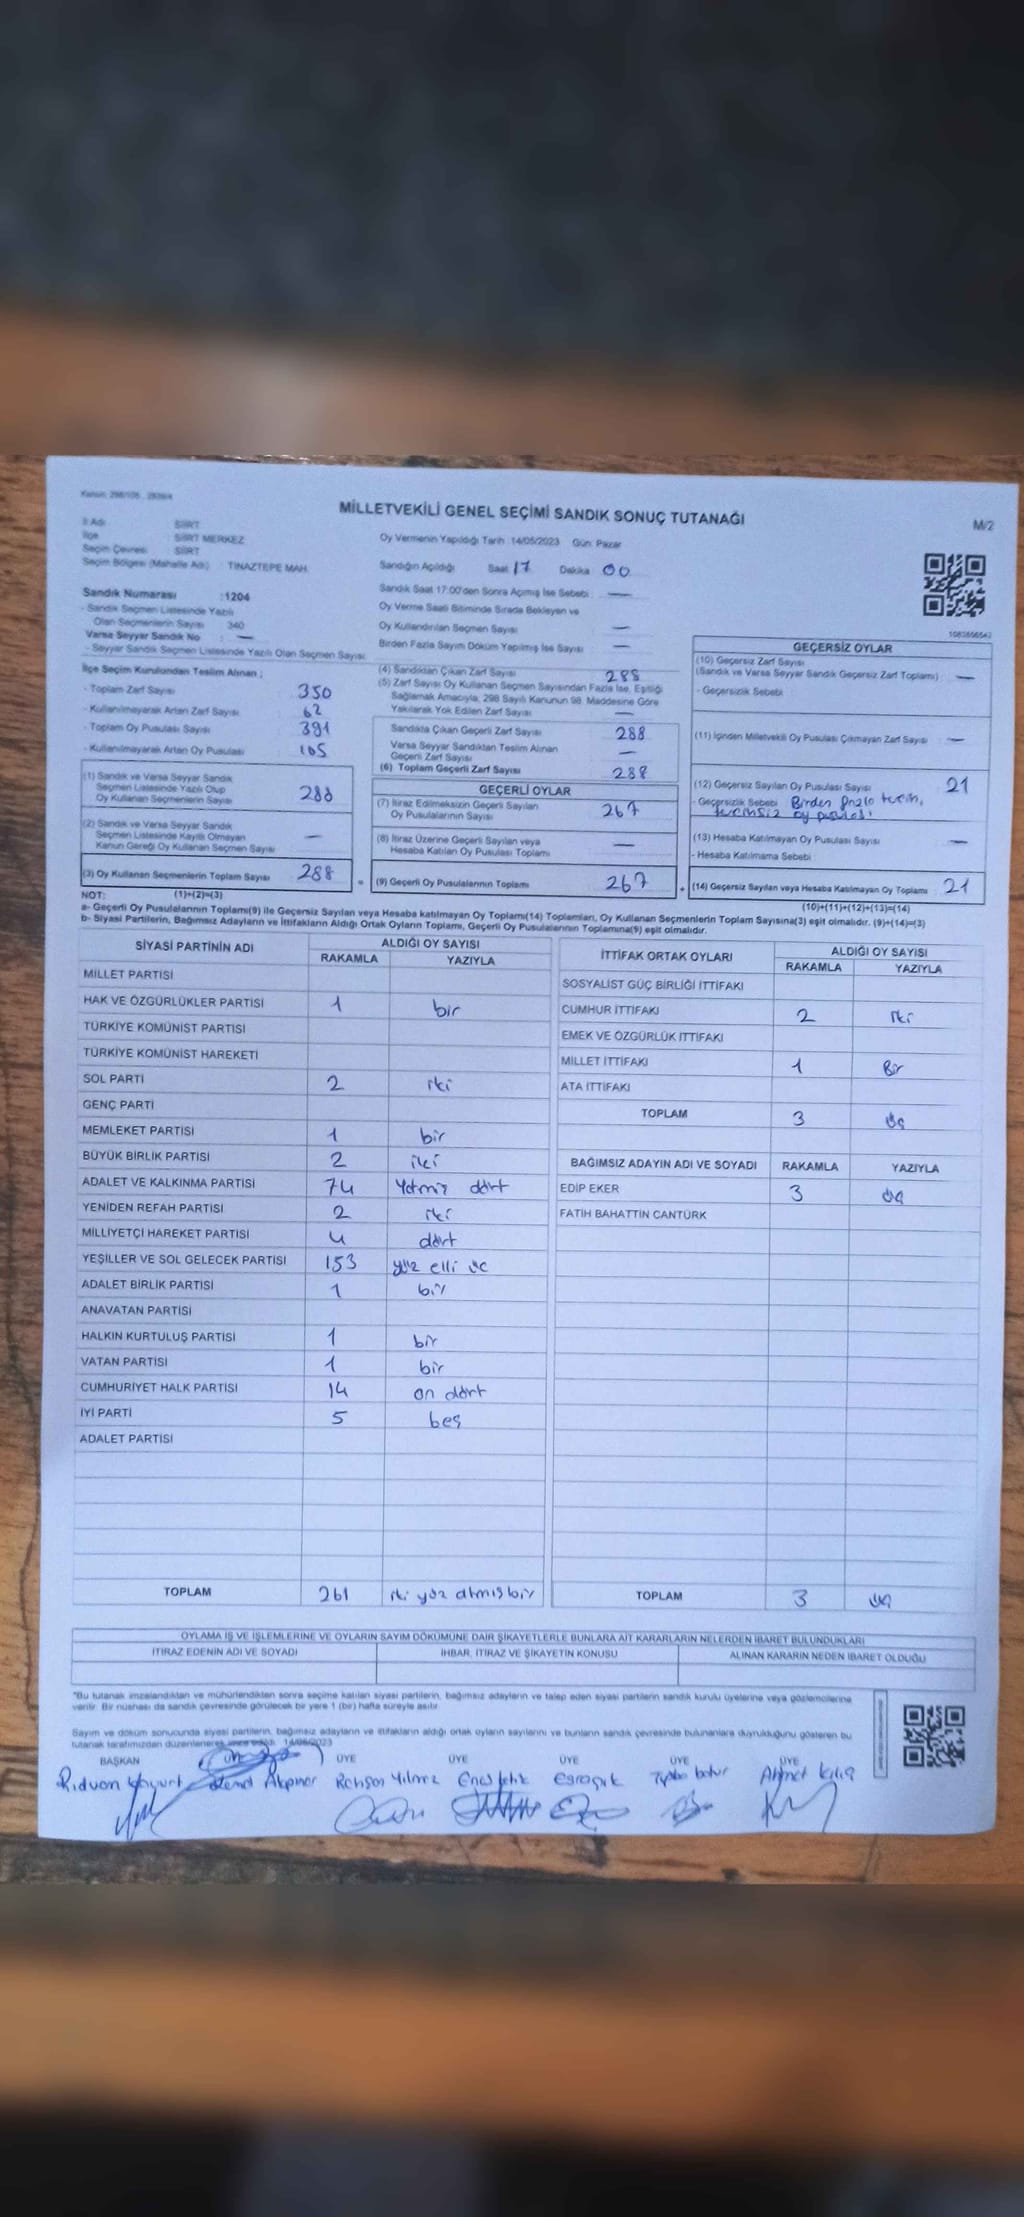 Kanun: 298/105 , 2839/4
MİLLETVEKİLİ GENEL SEÇİMİ SANDIK SONUÇ TUTANAĞI
M/2
İl Adı : SİİRT
İlçe : SİİRT MERKEZ
Seçim Çevresi : SİİRT
Seçim Bölgesi (Mahalle Adı) : TINAZTEPE MAH.
Oy Vermenin Yapıldığı Tarih :14/05/2023 Gün: Pazar
Sandığın Açıldığı Saat 17 Dakika 00
Sandık Saat 17:00'den Sonra Açılmış İse Sebebi : —
Oy Verme Saati Bitiminde Sırada Bekleyen ve
Oy Kullandırılan Seçmen Sayısı : —
Birden Fazla Sayım Döküm Yapılmış İse Sayısı : —
Sandık Numarası :1204
- Sandık Seçmen Listesinde Yazılı
Olan Seçmenlerin Sayısı : 340
Varsa Seyyar Sandık No : —
- Seyyar Sandık Seçmen Listesinde Yazılı Olan Seçmen Sayısı:
İlçe Seçim Kurulundan Teslim Alınan ;
- Toplam Zarf Sayısı : 350
- Kullanılmayarak Artan Zarf Sayısı : 62
- Toplam Oy Pusulası Sayısı : 391
- Kullanılmayarak Artan Oy Pusulası : 105
(1) Sandık ve Varsa Seyyar Sandık
Seçmen Listesinde Yazılı Olup
Oy Kullanan Seçmenlerin Sayısı : 288
(2) Sandık ve Varsa Seyyar Sandık
Seçmen Listesinde Kayıtlı Olmayan
Kanun Gereği Oy Kullanan Seçmen Sayısı : —
(3) Oy Kullanan Seçmenlerin Toplam Sayısı : 288
(4) Sandıktan Çıkan Zarf Sayısı : 288
(5) Zarf Sayısı Oy Kullanan Seçmen Sayısından Fazla İse, Eşitliği
Sağlamak Amacıyla, 298 Sayılı Kanunun 98. Maddesine Göre
Yakılarak Yok Edilen Zarf Sayısı : —
Sandıkta Çıkan Geçerli Zarf Sayısı : 288
Varsa Seyyar Sandıktan Teslim Alınan
Geçerli Zarf Sayısı : —
(6) Toplam Geçerli Zarf Sayısı : 288
GEÇERLİ OYLAR
(7) İtiraz Edilmeksizin Geçerli Sayılan
Oy Pusulalarının Sayısı : 267
(8) İtiraz Üzerine Geçerli Sayılan veya
Hesaba Katılan Oy Pusulası Toplamı : —
= (9) Geçerli Oy Pusulalarının Toplamı : 267
GEÇERSİZ OYLAR
(10) Geçersiz Zarf Sayısı
(Sandık ve Varsa Seyyar Sandık Geçersiz Zarf Toplamı) : —
- Geçersizlik Sebebi :
(11) İçinden Milletvekili Oy Pusulası Çıkmayan Zarf Sayısı : —
(12) Geçersiz Sayılan Oy Pusulası Sayısı : 21
- Geçersizlik Sebebi : Birden fazla tercih,
tercihsiz oy pusulası
(13) Hesaba Katılmayan Oy Pusulası Sayısı : —
- Hesaba Katılmama Sebebi :
+ (14) Geçersiz Sayılan veya Hesaba Katılmayan Oy Toplamı : 21
NOT: (1)+(2)=(3)
(10)+(11)+(12)+(13)=(14)
a- Geçerli Oy Pusulalarının Toplamı(9) ile Geçersiz Sayılan veya Hesaba katılmayan Oy Toplamı(14) Toplamları, Oy Kullanan Seçmenlerin Toplam Sayısına(3) eşit olmalıdır. (9)+(14)=(3)
b- Siyasi Partilerin, Bağımsız Adayların ve İttifakların Aldığı Ortak Oyların Toplamı, Geçerli Oy Pusulalarının Toplamına(9) eşit olmalıdır.
SİYASİ PARTİNİN ADI ALDIĞI OY SAYISI
RAKAMLA YAZIYLA
MİLLET PARTİSİ
HAK VE ÖZGÜRLÜKLER PARTİSİ 1 bir
TÜRKİYE KOMÜNİST PARTİSİ
TÜRKİYE KOMÜNİST HAREKETİ
SOL PARTİ 2 iki
GENÇ PARTİ
MEMLEKET PARTİSİ 1 bir
BÜYÜK BİRLİK PARTİSİ 2 iki
ADALET VE KALKINMA PARTİSİ 74 Yetmiş dört
YENİDEN REFAH PARTİSİ 2 iki
MİLLİYETÇİ HAREKET PARTİSİ 4 dört
YEŞİLLER VE SOL GELECEK PARTİSİ 153 yüz elli üc
ADALET BİRLİK PARTİSİ 1 bir
ANAVATAN PARTİSİ
HALKIN KURTULUŞ PARTİSİ 1 bir
VATAN PARTİSİ 1 bir
CUMHURİYET HALK PARTİSİ 14 on dört
İYİ PARTİ 5 beş
ADALET PARTİSİ
TOPLAM 261 iki yüz atmış bir
İTTİFAK ORTAK OYLARI ALDIĞI OY SAYISI
RAKAMLA YAZIYLA
SOSYALİST GÜÇ BİRLİĞİ İTTİFAKI
CUMHUR İTTİFAKI 2 iki
EMEK VE ÖZGÜRLÜK İTTİFAKI
MİLLET İTTİFAKI 1 Bir
ATA İTTİFAKI
TOPLAM 3 üç
BAĞIMSIZ ADAYIN ADI VE SOYADI RAKAMLA YAZIYLA
EDİP EKER 3 üç
FATİH BAHATTİN CANTÜRK
TOPLAM 3 üç
OYLAMA İŞ VE İŞLEMLERİNE VE OYLARIN SAYIM DÖKÜMÜNE DAİR ŞİKAYETLERLE BUNLARA AİT KARARLARIN NELERDEN İBARET BULUNDUKLARI
İTİRAZ EDENİN ADI VE SOYADI İHBAR, İTİRAZ VE ŞİKAYETİN KONUSU ALINAN KARARIN NEDEN İBARET OLDUĞU
"Bu tutanak imzalandıktan ve mühürlendikten sonra seçime katılan siyasi partilerin, bağımsız adayların ve talep eden siyasi partilerin sandık kurulu üyelerine veya gözlemcilerine
verilir. Bir nüshası da sandık çevresinde görülecek bir yere 1 (bir) hafta süreyle asılır.
Sayım ve döküm sonucunda siyasi partilerin, bağımsız adayların ve ittifakların aldığı ortak oyların sayılarını ve bunların sandık çevresinde bulunanlara duyrulduğunu gösteren bu
tutanak tarafımızdan düzenlenerek imza edildi. 14/05/2023
BAŞKAN ÜYE ÜYE ÜYE ÜYE ÜYE
Rıdvan Akpınar Yılmaz Enes Ahmet Kılıç